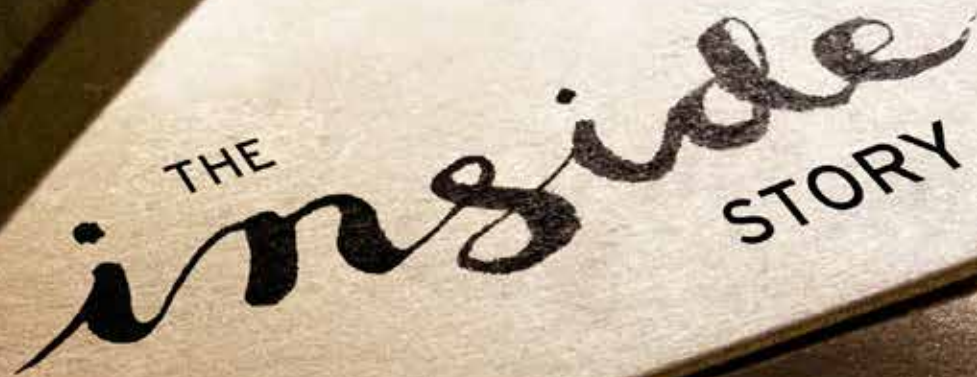 THE
inside
STORY